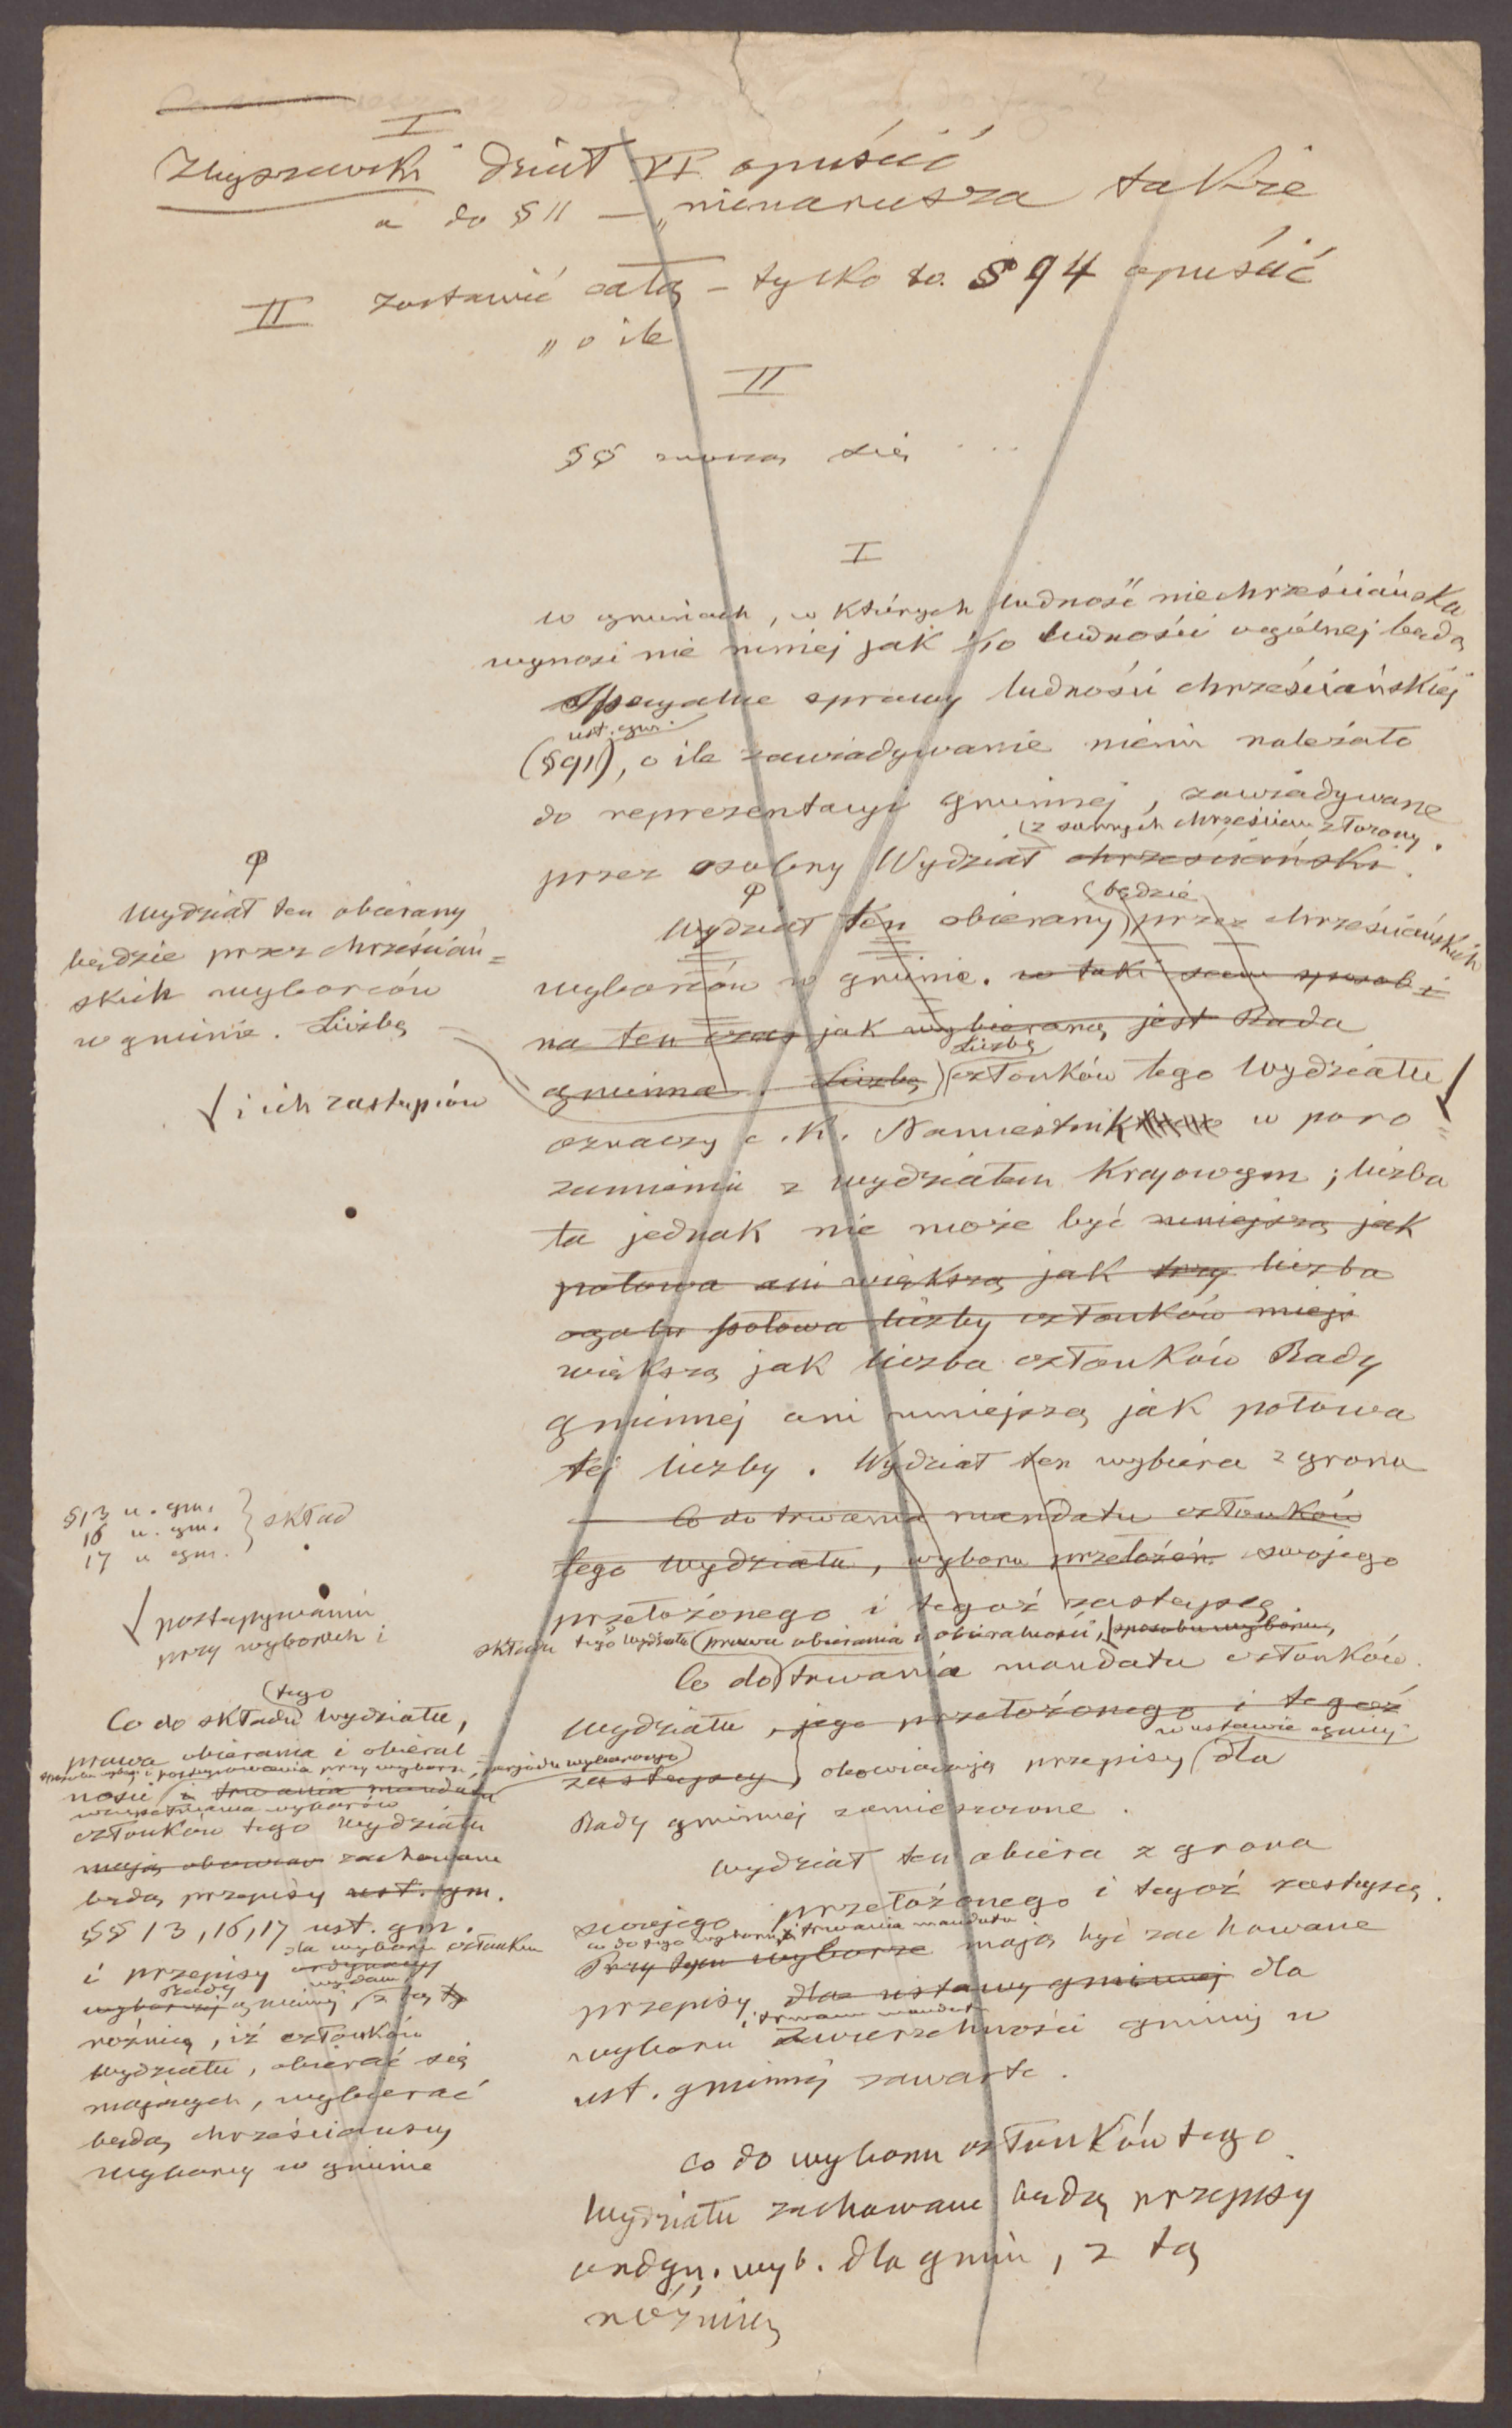 I
Zbyszewski dział VI opuścić
a do § 11 — „nienarusza także
II zostawić całą – tylko to. § 94 opuścić
„ o ile
II
§§ znoszą się ...
I
w gminach, w których ludność niechrześciańska
wynosi nie mniej jak 1/10 ludności ogólnej będą
Specyalne sprawy ludności chrześciańskiej
ust. gm.
(§91), o ile zawiadywanie niemi należało
do reprezentacyi gminnej, zawiadywane
z samych chrześcian złożony.
przez osobny Wydział chrześciański.
będzie
Wydział ten obierany przez chrześciańskich
wyborców w gminie. w taki sam sposób i
na ten czas jak wybieraną jest Rada
Liczbę
gminna. Liczbę członków tego Wydziału
oznaczy c. k. Namiestnik w poro=
zumieniu z wydziałem Krajowym; liczba
ta jednak nie może być mniejszą jak
połowa ani większą jak trzy liczba
ogółu połowa liczby członków miejs
większą jak liczba członków Rady
gminnej ani mniejszą jak połowa
tej liczby. Wydział ten wybiera z grona
Co do trwania mandatu członków
tego Wydziału, wyboru przełożon. swojego
przełożonego i tegoż zastępcę
składu tego Wydziału prawa obierania i obieralności, sposobu wyboru,
Co do trwania mandatu członków
Wydziału, jego przełożonego i tegoż
w ustawie gminnej
zastępcy, obowiązują przepisy dla
Rady gminnej zamieszczone.
Wydział ten obiera z grona
swojego przełożonego i tegoż zastępcę.
co do tego wyboru i trwania mandatu
Przy tym wyborze mają być zachowane
przepisy dla ustawy gminnej dla
i trwania mandatu
wyboru Zwierzchności gminnej w
ust. gminnej zawarte.
Co do wyboru członków tego
Wydziału zachowane będą przepisy
ordyn. wyb. dla gmin, z tą
różnicą
Wydział ten obierany
będzie przez chrześciań=
skich wyborców
w gminie. Liczbę
i ich zastępców
§13 u. gm.
16 u. gm. } skład
17 u gm.
postępywaniu
przy wyborach i
tego
Co do składu Wydziału,
prawa obierania i obieral
postępowania przy wyborze, zarządu wyborczego
ności i trwania mandatu
wyborów
członków tego Wydziału
mają obowiąz zachowane
będą przepisy ust. gm.
§§ 13, 16, 17 ust. gm.
dla wyboru członków
i przepisy ordynacyi
Rady wydane
wyborczej gminnej, z tą
różnicą, iż członków
Wydziału, obierać się
mających, wybierać
będą chrześciańscy
wyborcy w gminie